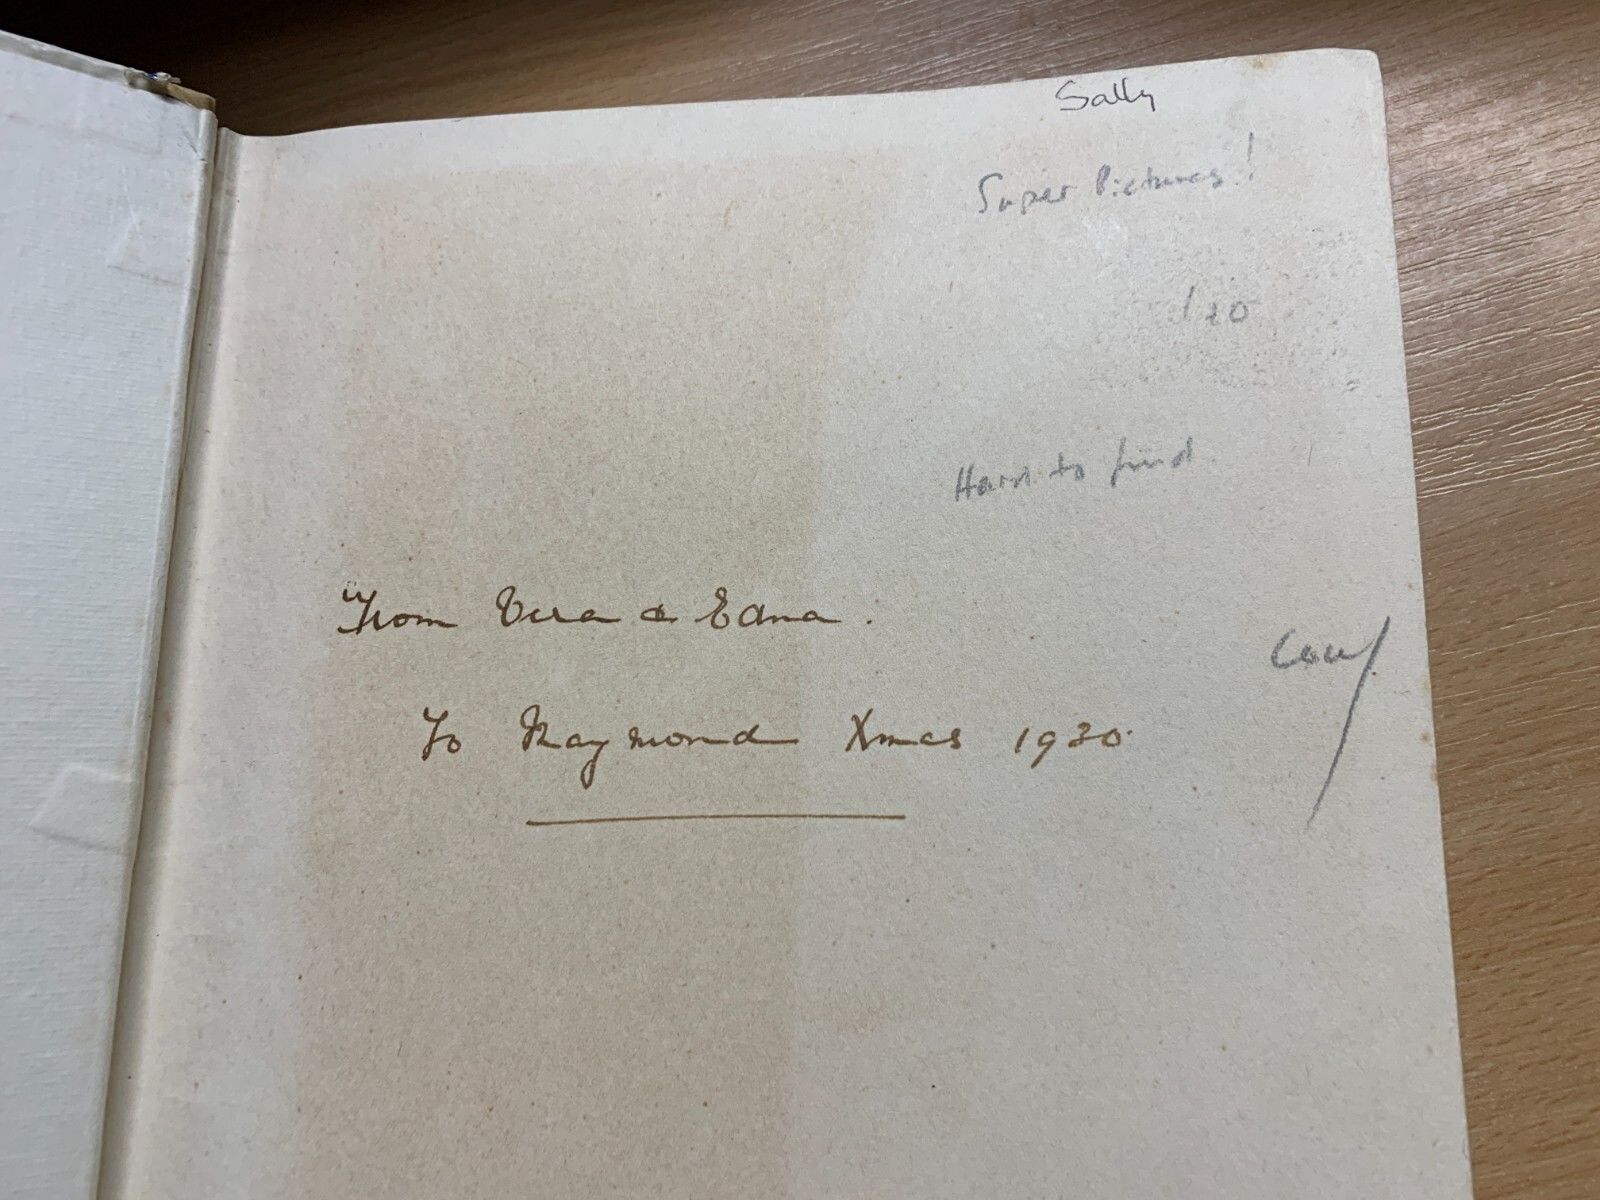 Sally
Super Pictures!
Hard to find
From Vera & Edna.
To Raymond Xmas 1930.